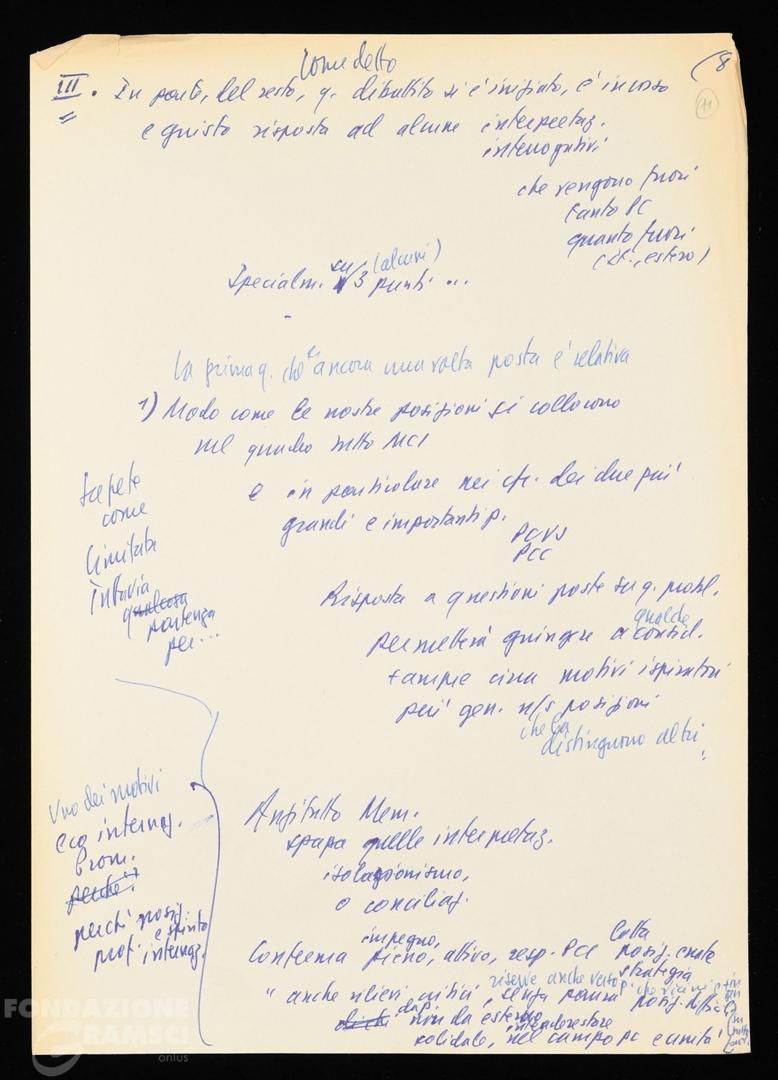 Come detto
(8
11
III. In parte, del resto, q. dibattito si è iniziato, è in corso
e questo risposta ad alcune interpretaz.
interrogativi
che vengono fuori
tanto PC
quanto fuori
(It., estero)
Specialm. su 3 (alcuni) punti ...
La prima q. che è ancora una volta posta è relativa
1) Modo come le nostre posizioni si collocano
nel quadro tutto MCI
e in particolare nei cfr. dei due più
grandi e importanti p.
PCUS
PCC
Sapete
come
limitata
Tuttavia
qualcosa
partenza
per...
Risposta a questioni poste su q. probl.
permetterà giungere a qualche consid.
+ ampie circa motivi ispiratori
più gen. n/s posizioni
che la
distinguono altri
Uno dei motivi
eco internaz.
Prom.
perché?
perché posiz.
e spirito
prof. internaz.
Anzitutto Mem.
quelle interpretaz.
isolazionismo,
o conciliaz.
impegno,
Conferma pieno, attivo, resp. PCI
Lotta
posiz. errate
strategia
" anche rilievi critici, senza
riserve anche verso p. che vicini
non da esterno
solidale, nel campo PC e unità
FONDAZIONE
GRAMSCI
onlus